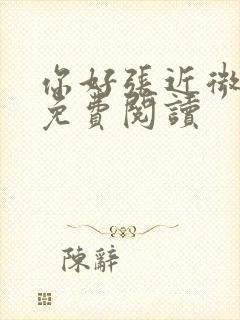 你好張近微
免費閱讀
陳辭